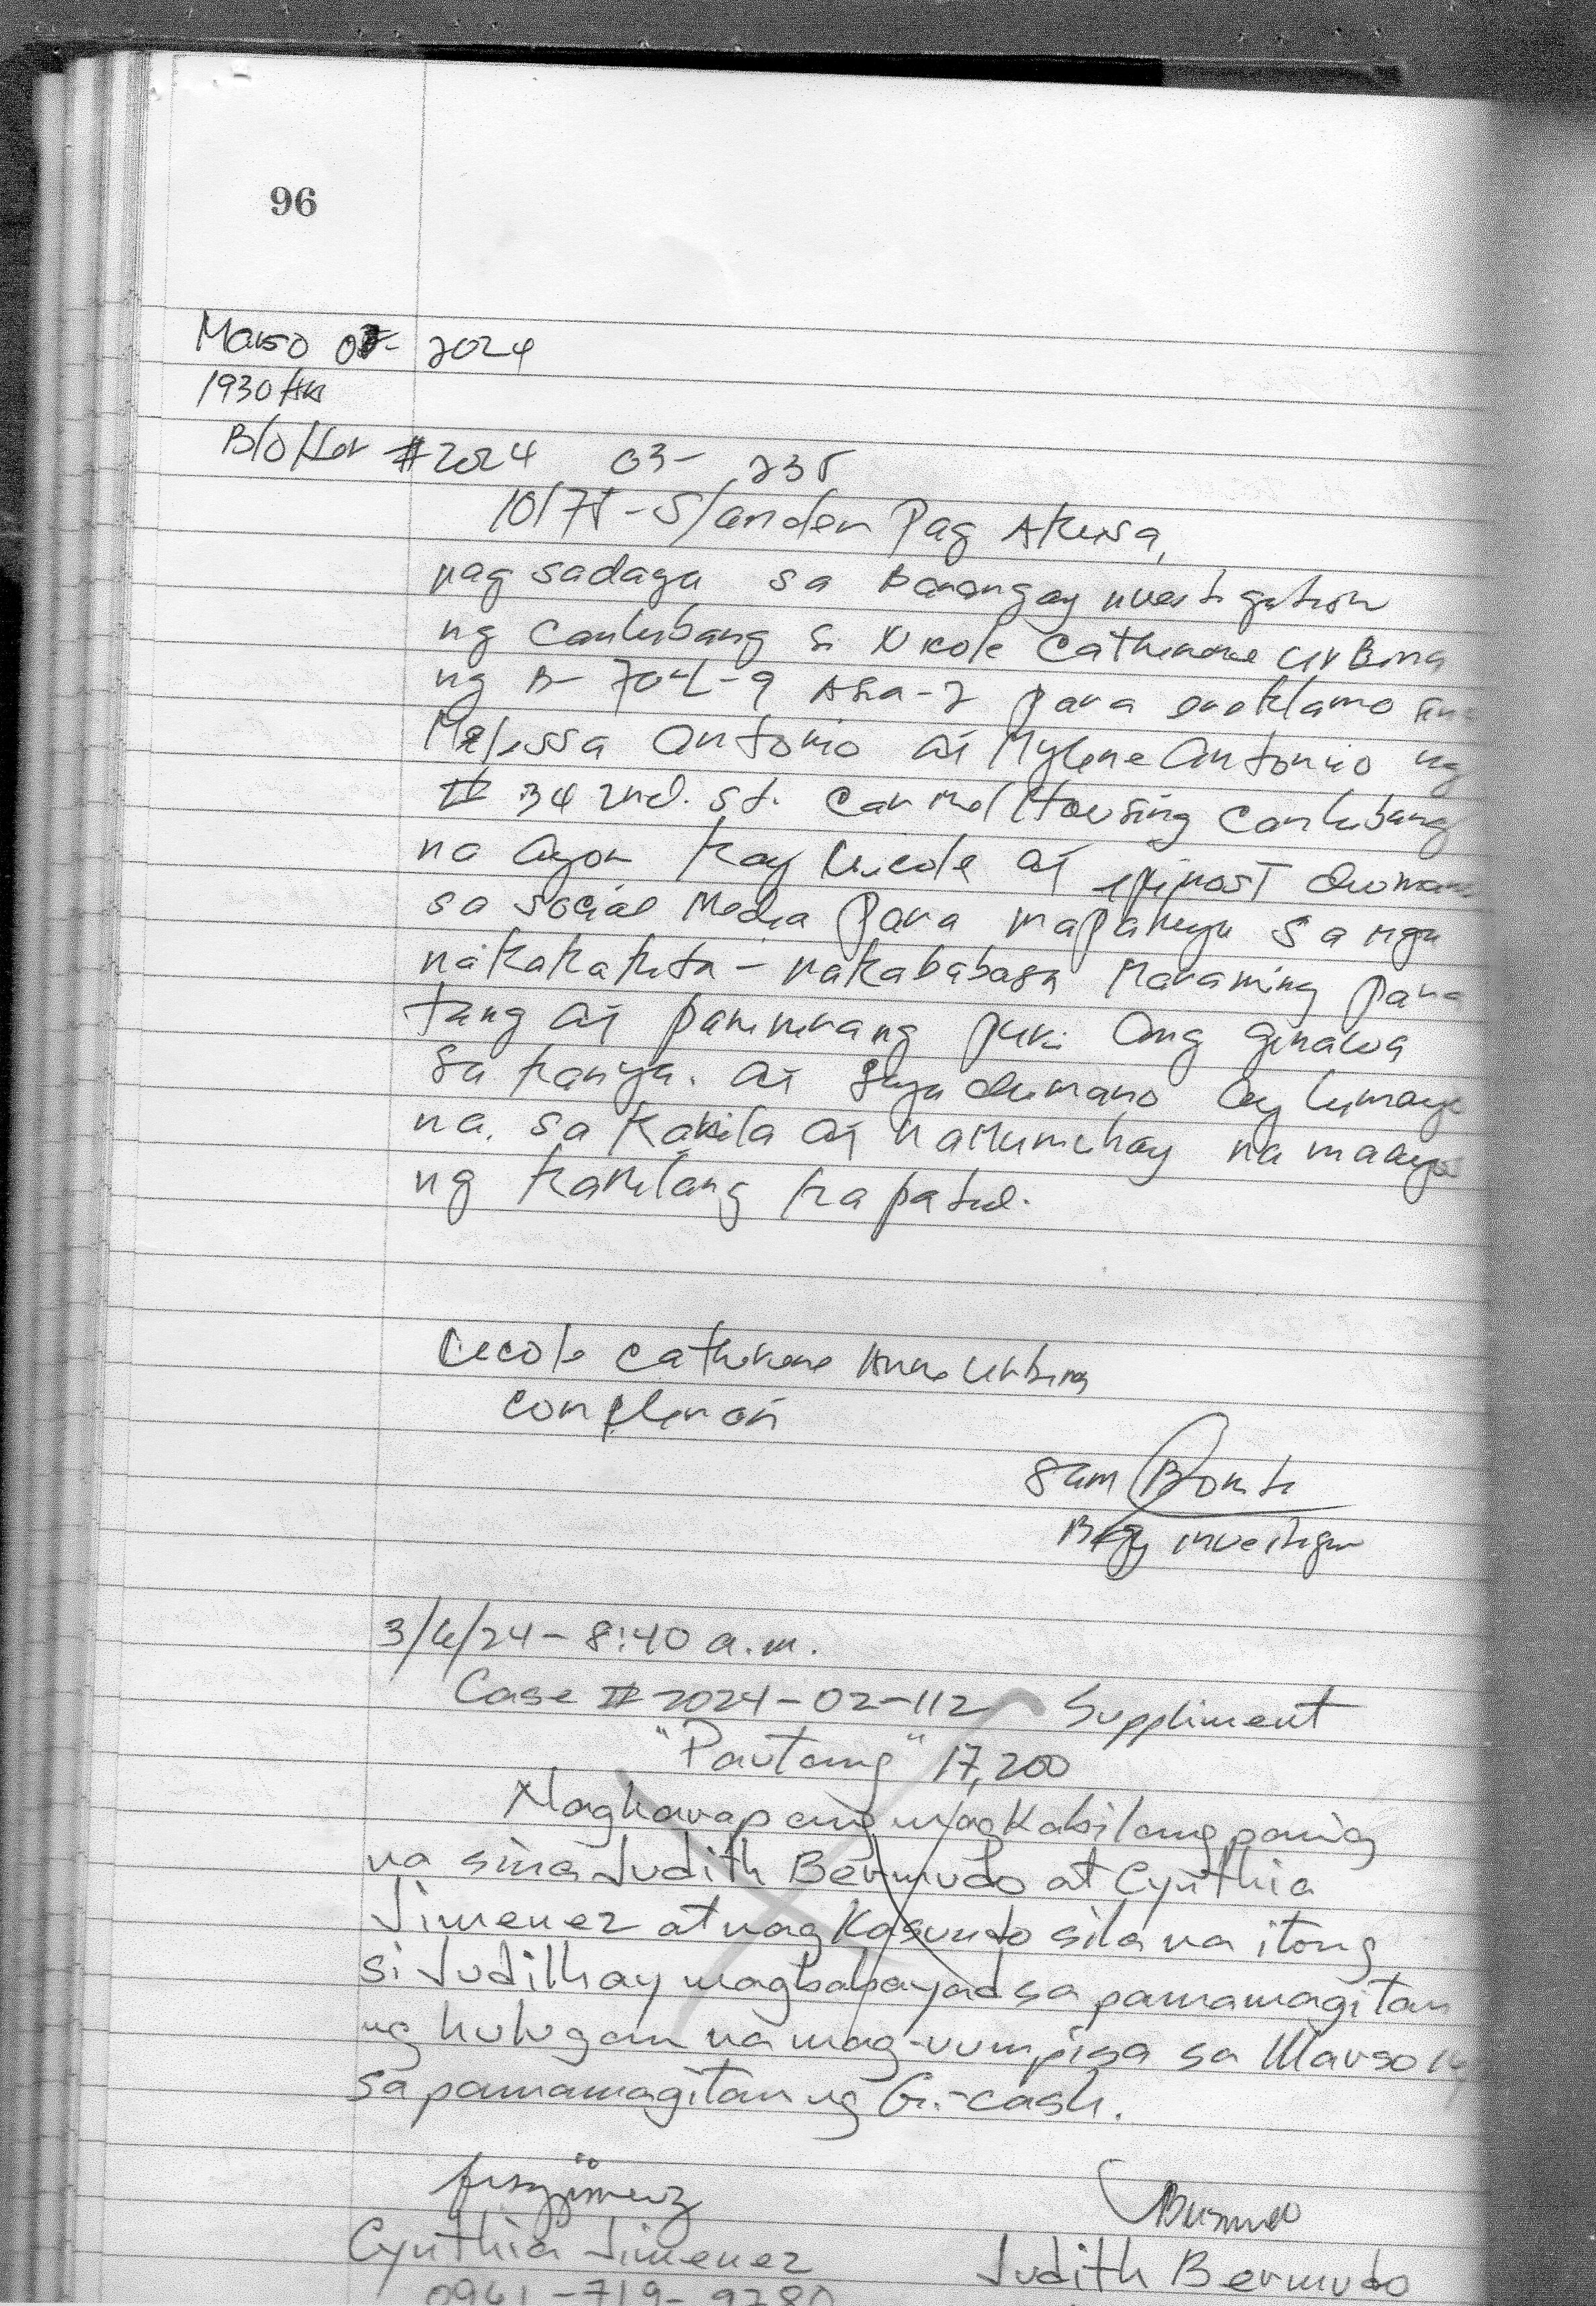 96
Marso 05- 2024
1930 HRS
Blotter #2024 03- 235
10175 - Slander Pag Akusa,
nag sadaya sa Barangay nvestigation
ng Canlubang si Nicole Catherine Urbina
ng B- 70 L-9 Asia-2 para ereklamo sina
Melissa Antonio at Mylene Antonio ng
# 34 2nd. St. Carmel Housing Canlubang
na ayon kay Nicole at ipinost dumano
sa social media para mapahiya sa mga
nakakakita - nakababasa Maraming para
tang at paninirang puri ang ginawa
sa kanya. at siya dumano ay lumayo
na. sa kanila at namumuhay na maayos
ng kanilang kapatid.
Nicole Catherine Anne Urbina
complinant
Sam Bonti
Brgy investiga
3/6/24 - 8:40 a.m.
Case # 2024-02-112 Suppliment
"Pautang" 17,200
Nagharap ang magkabilang panig
na sina Judith Bermudo at Cynthia
Jimenez at nagkasundo sila na itong
si Judith ay magbabayad sa pamamagitan
ng hulugan na mag-uumpisa sa Marso 14
sa pamamagitan ng G.-cash.
Cynthia Jimenez
Judith Bermudo
0961-719-9780